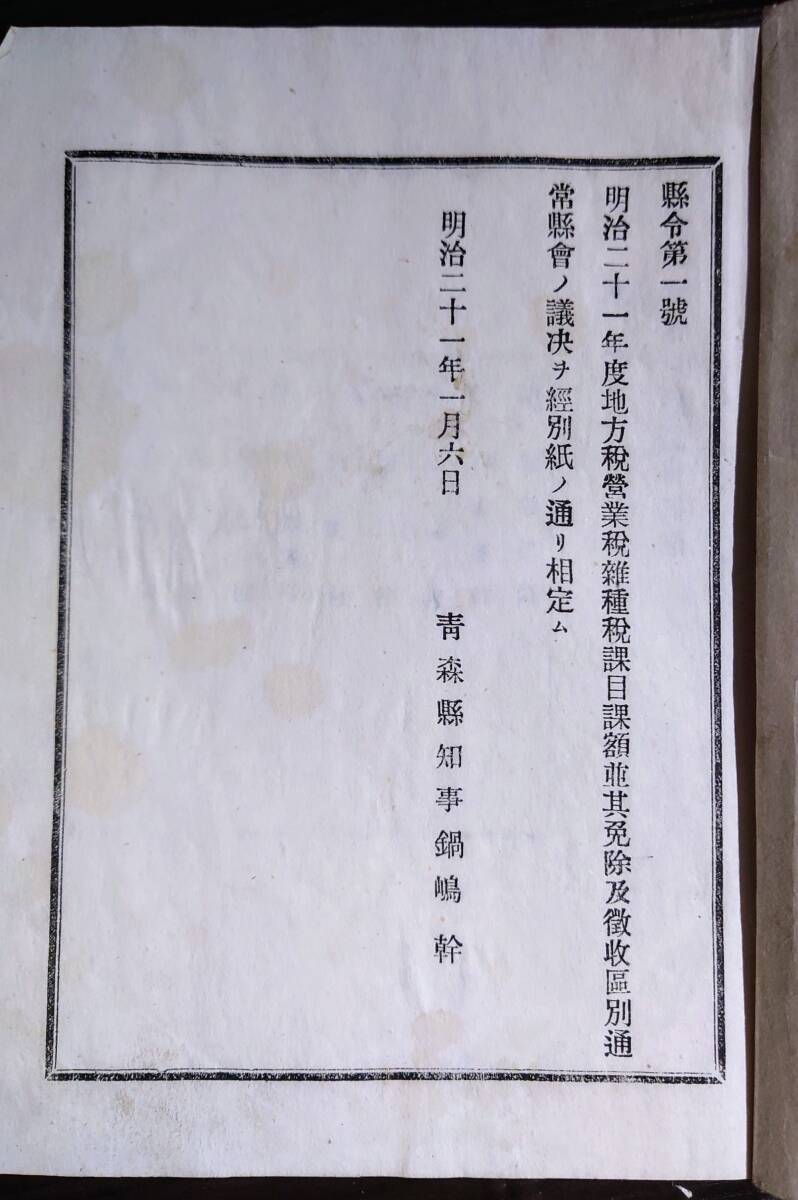 縣令第一號
明治二十一年度地方稅營業稅雜種稅課目課額並其免除及徵收區別通
常縣會ノ議决ヲ經別紙ノ通リ相定ム
明治二十一年一月六日
靑森縣知事鍋嶋幹